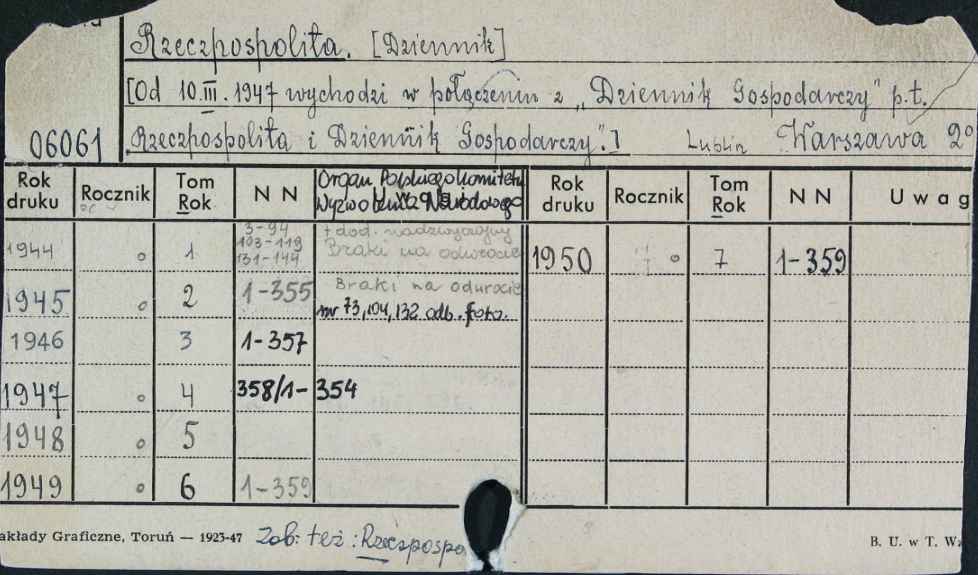 Rzeczpospolita. [Dziennik]
[Od 10.III.1947 wychodzi w połączeniu z „Dziennik Gospodarczy" p.t.
06061 Rzeczpospolita i Dziennik Gospodarczy".] Lublin Warszawa 2°
Rok druku Rocznik Tom Rok N N Organ Polskiego Komitetu Wyzwolenia Narodowego Rok druku Rocznik Tom Rok N N Uwag
1944 o 1 3-94 + dod. nadzwyczajny
103-119 Braki na odwrocie 1950 o 7 1-359
131-144
1945 o 2 1-355 Braki na odwrocie
nr 73, 104, 132 odb. foto.
1946 3 1-357
1947 o 4 358/1-354
1948 o 5
1949 o 6 1-359
akłady Graficzne, Toruń — 1923-47 Zob: też: Rzeczpospo B. U. w T. Wz